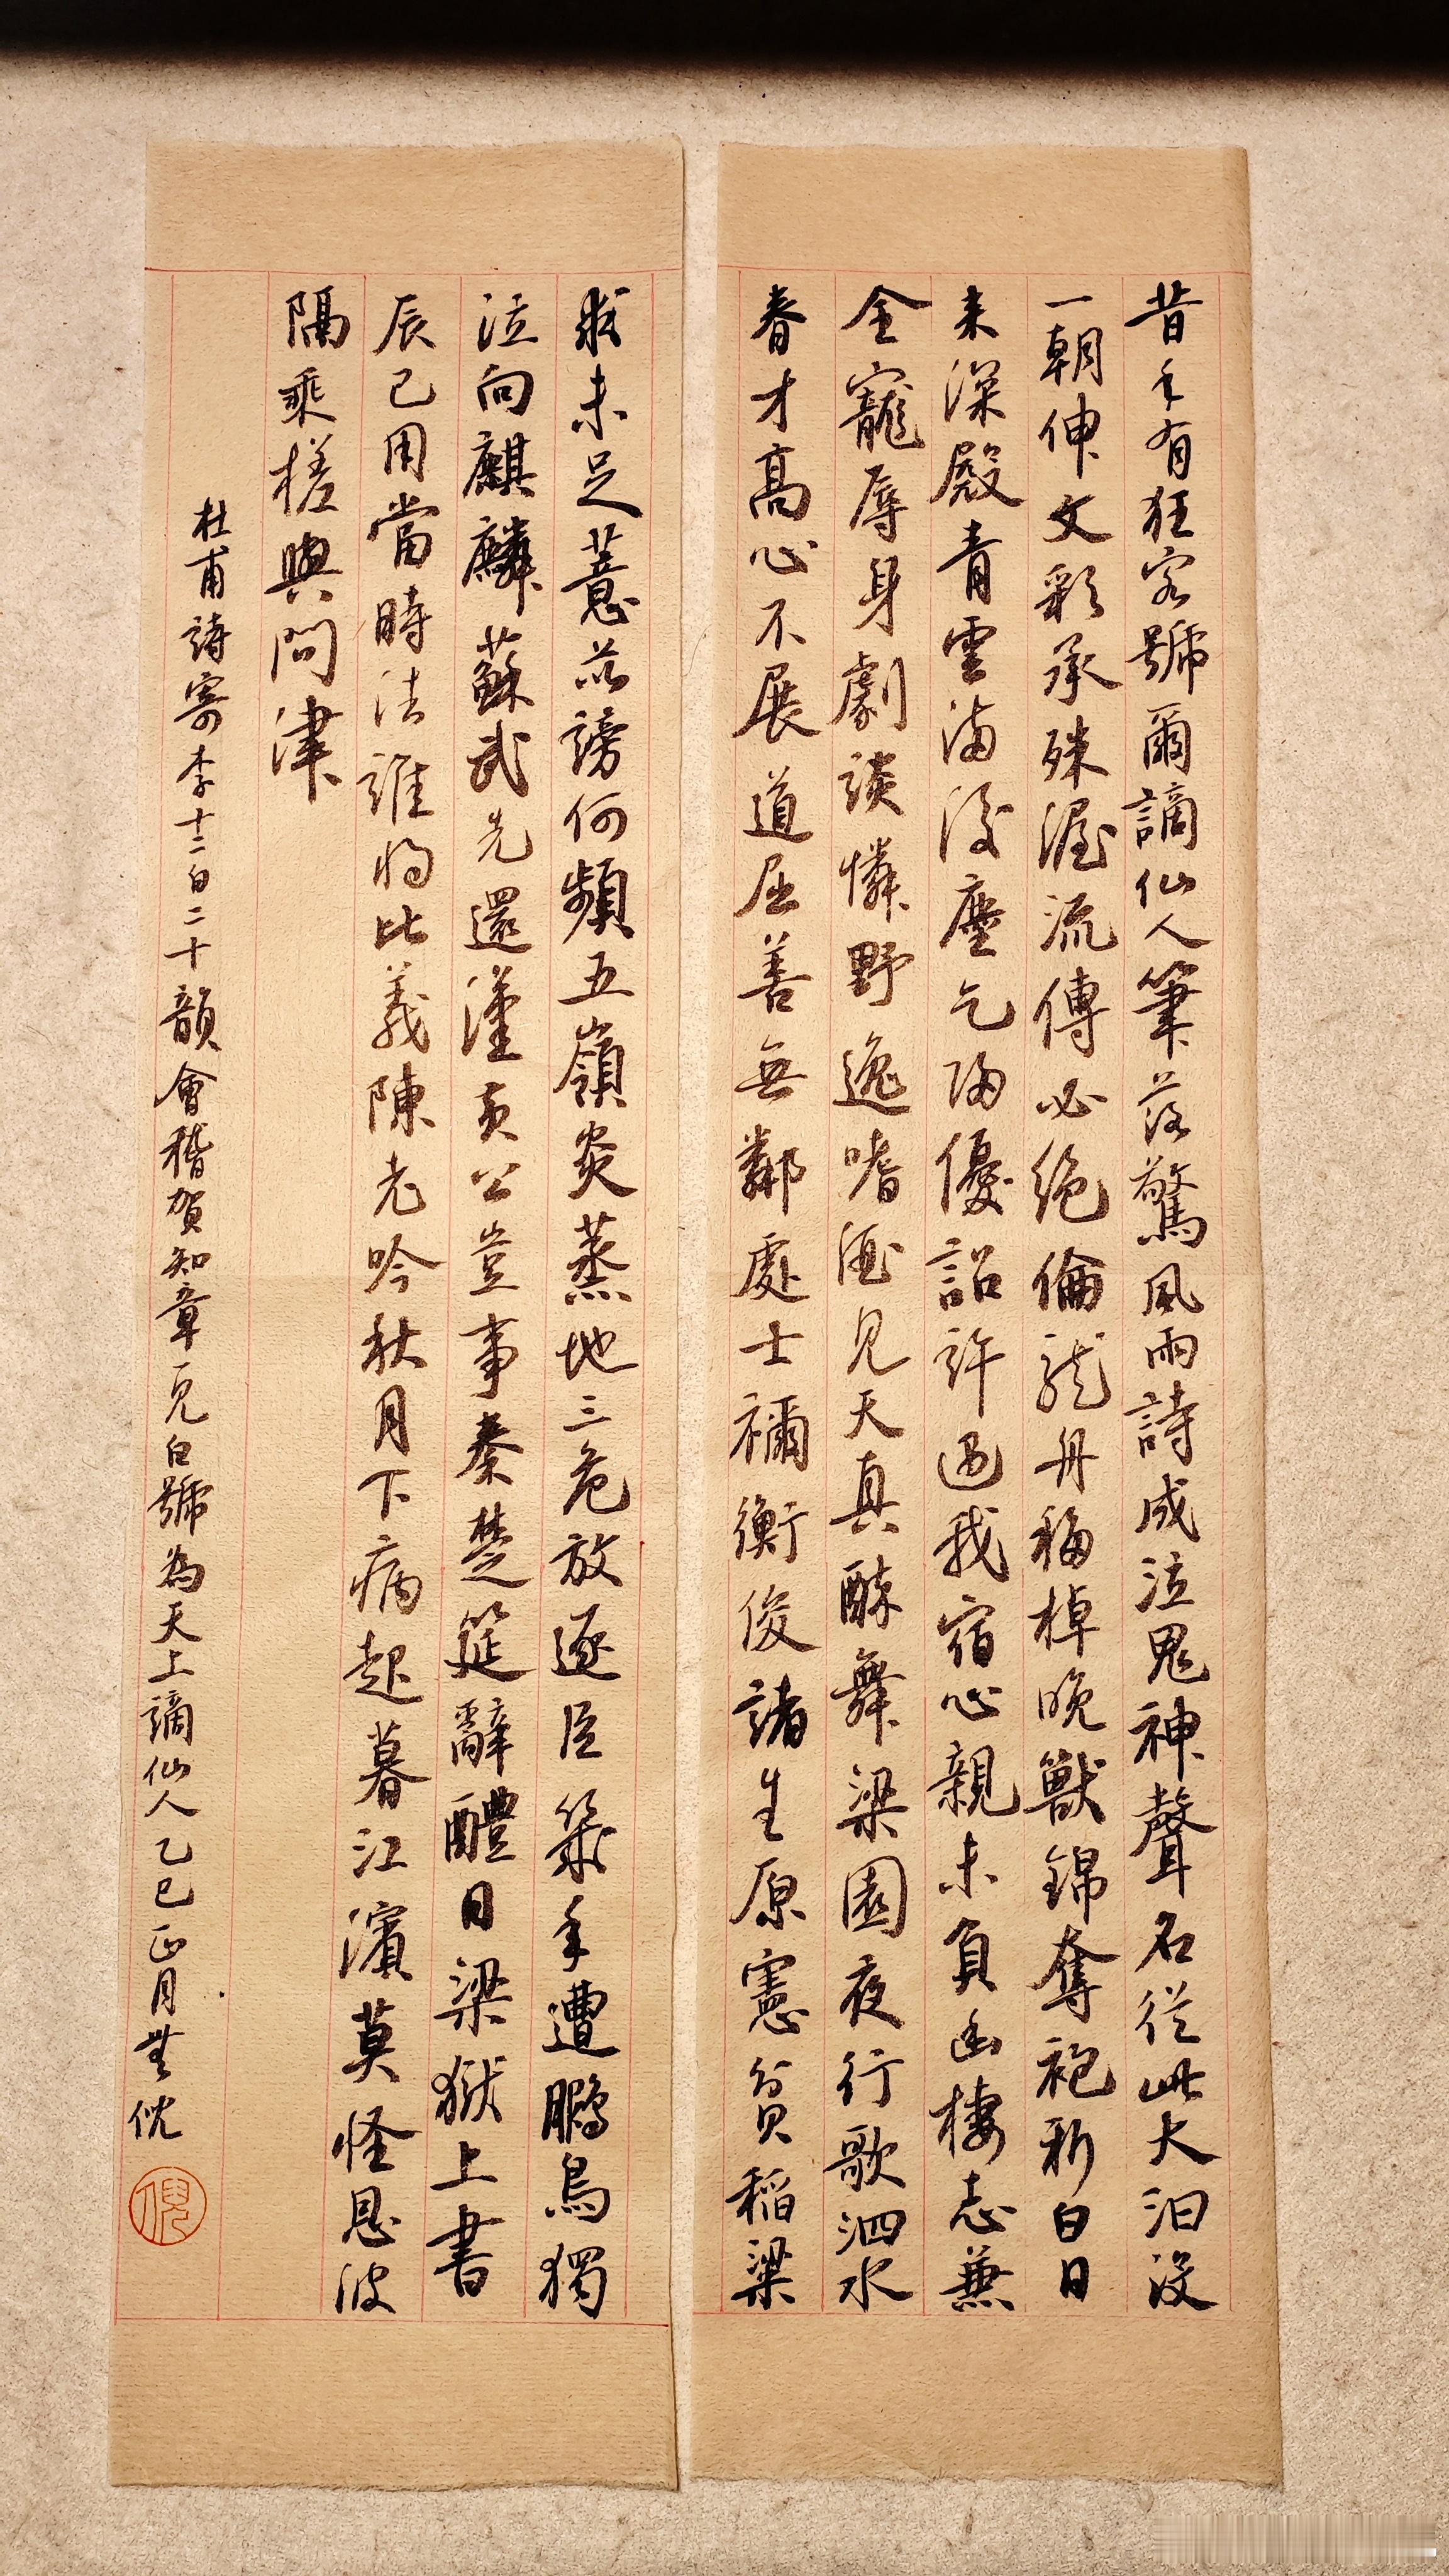 昔年有狂客號爾謫仙人筆落驚風雨詩成泣鬼神聲名從此大汨沒
一朝伸文彩承殊渥流傳必絕倫龍舟移棹晚獸錦奪袍新白日
來深殿青雲滿後塵乞歸優詔許遇我宿心親未負幽棲志兼
全寵辱身劇談憐野逸嗜酒見天真醉舞梁園夜行歌泗水
春才高心不展道屈善無鄰處士禰衡俊諸生原憲貧稻粱
求未足薏苡謗何頻五嶺炎蒸地三危放逐臣幾年遭鵩鳥獨
泣向麒麟蘇武先還漢黃公豈事秦楚筵辭醴日梁獄上書
辰已用當時法誰將此義陳老吟秋月下病起暮江濱莫怪恩波
隔乘槎與問津
杜甫詩寄李十二白二十韻會稽賀知章一見白號為天上謫仙人乙巳正月無倪
倪